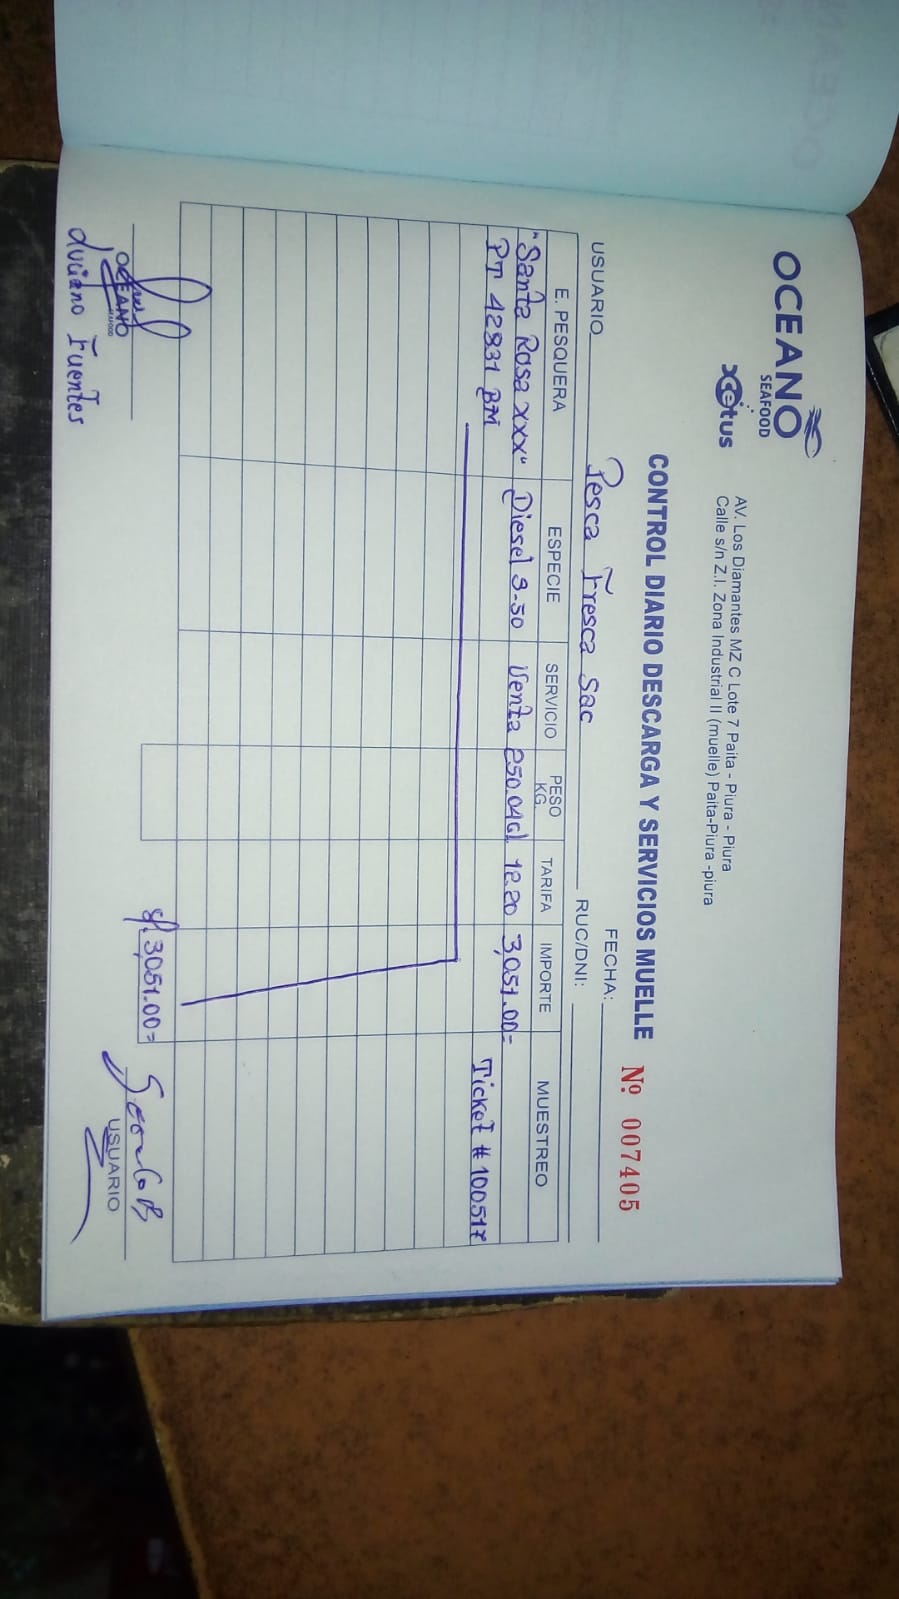 OCEANO
SEAFOOD
xcetus
AV. Los Diamantes MZ C Lote 7 Paita - Piura - Piura
Calle s/n Z.I. Zona Industrial II (muelle) Paita-Piura -piura
CONTROL DIARIO DESCARGA Y SERVICIOS MUELLE Nº 007405
FECHA:
USUARIO Pesca Fresca Sac RUC/DNI:
E. PESQUERA ESPECIE SERVICIO PESO KG. TARIFA IMPORTE MUESTREO
"Santa Rosa XXX" Diesel 3-50 Venta 250.04Gl 12.20 3,051.00=
PT 42831 BM Ticket # 100517
S/. 3,051.00=
OCEANO
SEAFOOD
USUARIO
Luciano Fuentes